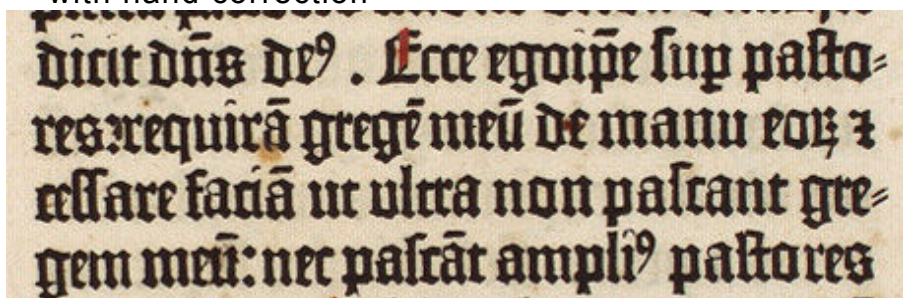 with hand correction
dicit dn̄s deꝰ . Ecce egoip̄e ſuꝑ paſto⸗
res: ⁊requirā gregē meū de manu eoꝝ ⁊
ceſſare faciā ut ultra non paſcant gre⸗
gem meū: nec paſcāt ampliꝰ paſtores